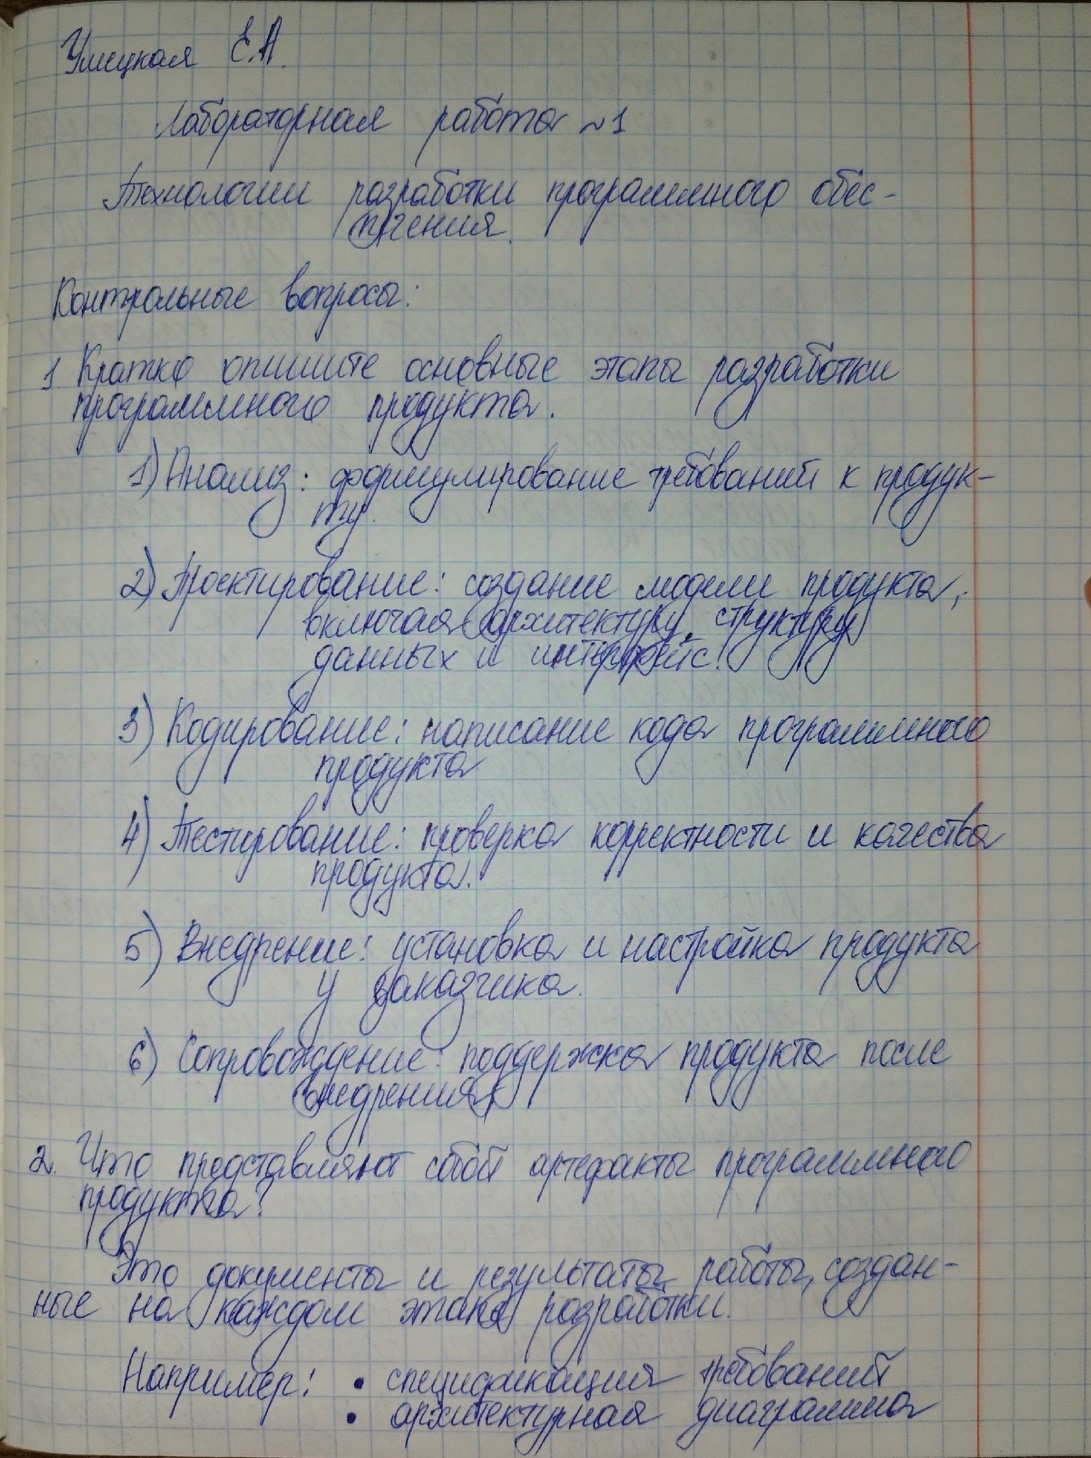 Умецкая Е.А.
Лабораторная работа №1
Технологии разработки программного обес-
печения.
Контрольные вопросы:
1. Кратко опишите основные этапы разработки
программного продукта.
1) Анализ: формулирование требований к продук-
ту.
2) Проектирование: создание модели продукта,
включая архитектуру, структуру
данных и интерфейс.
3) Кодирование: написание кода программного
продукта
4) Тестирование: проверка корректности и качества
продукта.
5) Внедрение: установка и настройка продукта
у заказчика.
6) Сопровождение: поддержка продукта после
внедрения.
2. Что представляют собой артефакты программного
продукта?
Это документы и результаты работы, создан-
ные на каждом этапе разработки.
Например: • спецификация требований
• архитектурная диаграмма